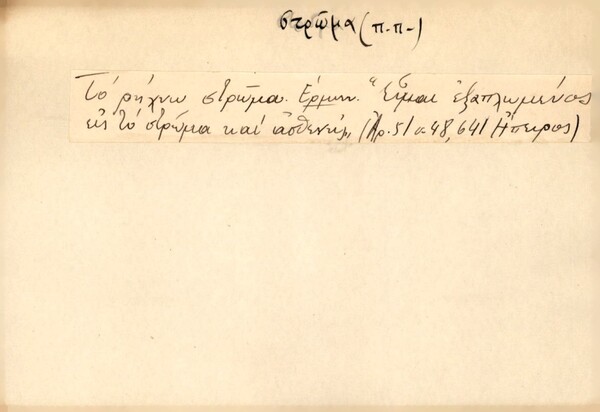 στρῶμα (π.π-)
Τό ρήχνω στρῶμα. Ερμην. "Εἶμαι ἐξαπλωμένος
εἰς τό στρῶμα καί ἀσθενής, (Ἀρ. 51 σ. 48, 641 Ἤπειρος)